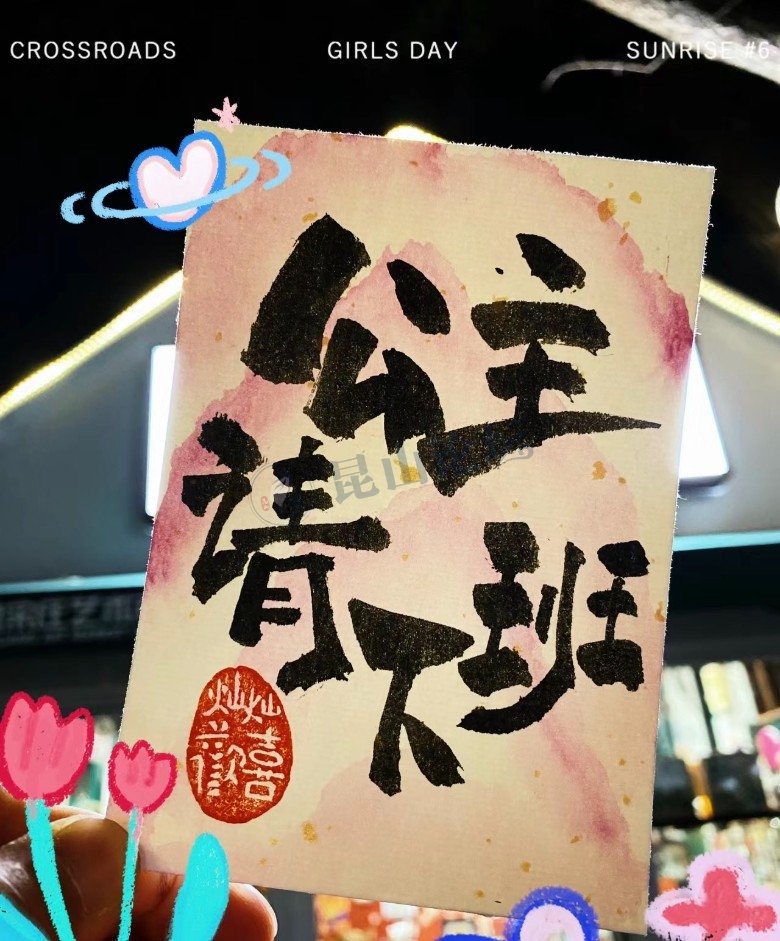 CROSSROADS GIRLS DAY SUNRISE #6
公主
请下班
昆山
喜欢
灿灿